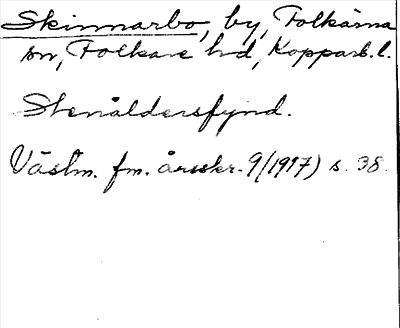 Skinnarbo, by, Folkärna
sn, Folkare hd, Kopparb. l.
Stenåldersfynd.
Västm. fm. årsskr. 9 (1917) s. 38.